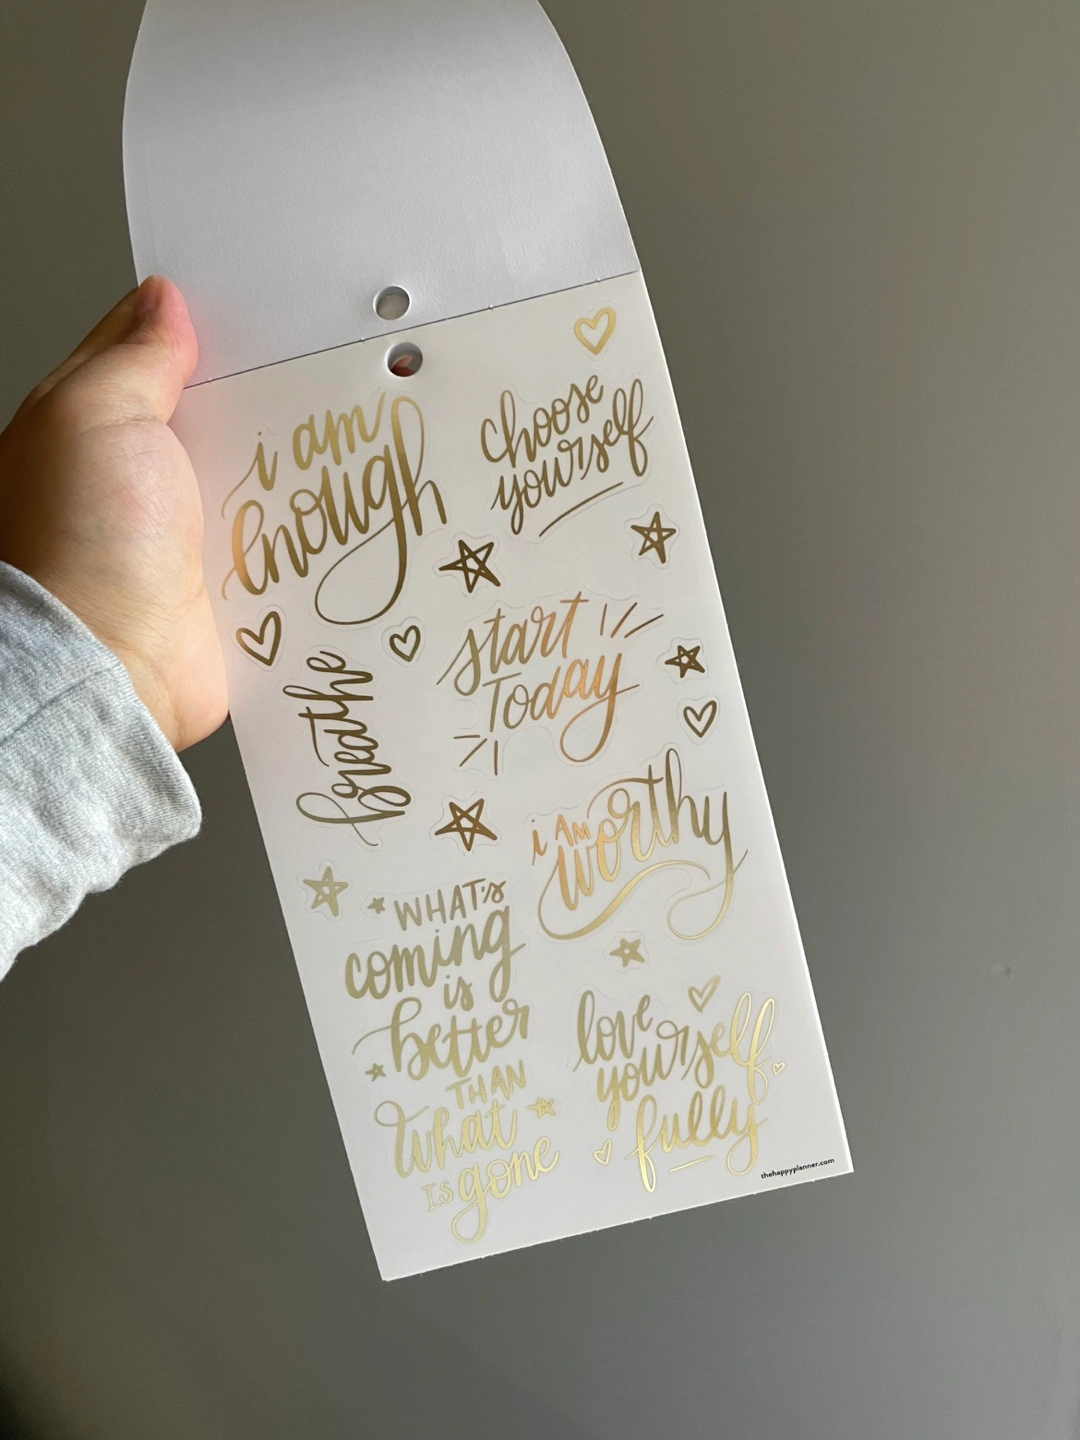 i am
enough
choose
yourself
start
Today
breathe
i AM
worthy
WHAT'S
coming
is
better
THAN
what
IS gone
love
yourself
fully
thehappyplanner.com